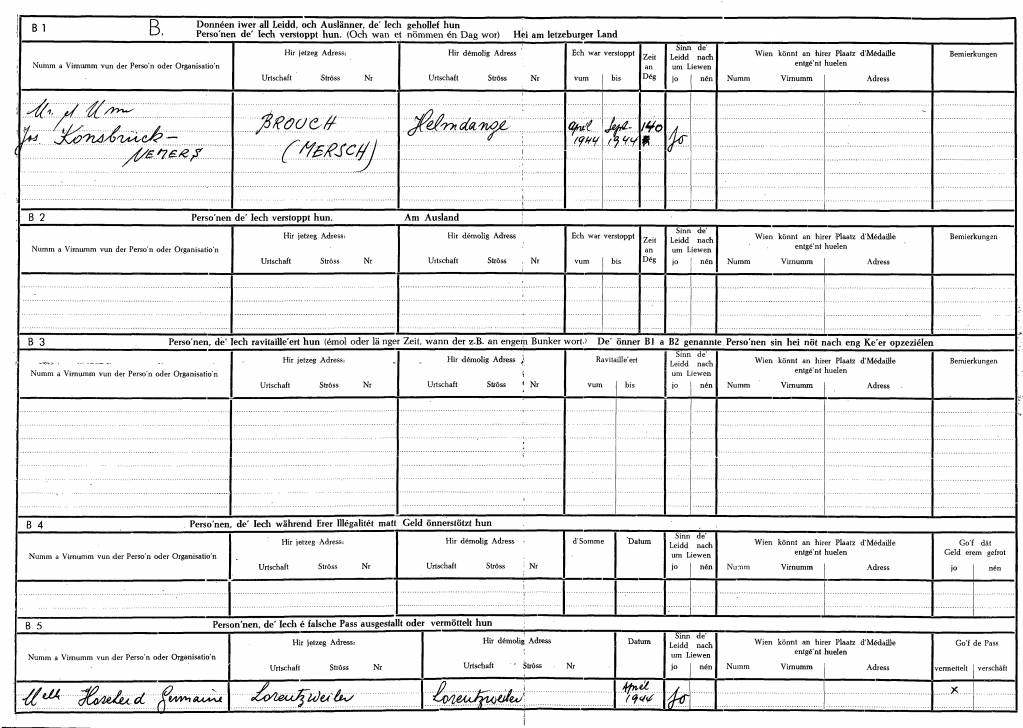 B 1 B. Donnéen iwer all Leidd, och Auslänner, de' Iech gehollef hun
Perso'nen de' Iech verstoppt hun. (Och wan et nömmen én Dag wor) Hei am letzeburger Land
Numm a Virnumm vun der Perso'n oder Organisatio'n
Hir jetzeg Adress:
Urtschaft Ströss Nr
Hir démolig Adress
Urtschaft Ströss Nr
Ech war verstoppt
vum bis
Zeit
an
Dég
Sinn de'
Leidd nach
um Liewen
jo nén
Wien könnt an hirer Plaatz d'Médaille
entgé'nt huelen
Numm Virnumm Adress
Bemierkungen
Mr. et Mme
Jos Konsbrück-
NEMERS
BROUCH
(MERSCH)
Helmdange
April
1944
Sept
1944
140
Jo
B 2 Perso'nen de' Iech verstoppt hun. Am Ausland
Numm a Virnumm vun der Perso'n oder Organisatio'n
Hir jetzeg Adress:
Urtschaft Ströss Nr
Hir démolig Adress
Urtschaft Ströss Nr
Ech war verstoppt
vum bis
Zeit
an
Dég
Sinn de'
Leidd nach
um Liewen
jo nén
Wien könnt an hirer Plaatz d'Médaille
entgé'nt huelen
Numm Virnumm Adress
Bemierkungen
B 3 Perso'nen, de' Iech ravitaille'ert hun (émol oder länger Zeit, wann der z.B. an engem Bunker wort.) De' önner B1 a B2 genannte Perso'nen sin hei nöt nach eng Ke'er opzeziélen
Numm a Virnumm vun der Perso'n oder Organisatio'n
Hir jetzeg Adress:
Urtschaft Ströss Nr
Hir démolig Adress
Urtschaft Ströss Nr
Ravitaille'ert
vum bis
Sinn de'
Leidd nach
um Liewen
jo nén
Wien könnt an hirer Plaatz d'Médaille
entgé'nt huelen
Numm Virnumm Adress
Bemierkungen
B 4 Perso'nen, de' Iech während Erer Illégalitét matt Geld önnerstötzt hun
Numm a Virnumm vun der Perso'n oder Organisatio'n
Hir jetzeg Adress:
Urtschaft Ströss Nr
Hir démolig Adress
Urtschaft Ströss Nr
d'Somme
Datum
Sinn de'
Leidd nach
um Liewen
jo nén
Wien könnt an hirer Plaatz d'Médaille
entgé'nt huelen
Numm Virnumm Adress
Go'f dât
Geld erem gefrot
jo nén
B 5 Person'nen, de' Iech é falsche Pass ausgestallt oder vermöttelt hun
Numm a Virnumm vun der Perso'n oder Organisatio'n
Hir jetzeg Adress:
Urtschaft Ströss Nr
Hir démolig Adress
Urtschaft Ströss Nr
Datum
Sinn de'
Leidd nach
um Liewen
jo nén
Wien könnt an hirer Plaatz d'Médaille
entgé'nt huelen
Numm Virnumm Adress
Go'f de Pass
vermettelt verschâft
Melle Hoscheid Germaine
Lorentzweiler
Lorentzweiler
April
1944
Jo
x